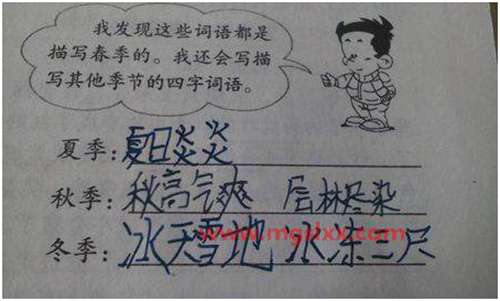 我发现这些词语都是
描写春季的。我还会写描
写其他季节的四字词语。
夏季：夏日炎炎
秋季：秋高气爽 层林尽染
www.mgdxx.com
冬季：冰天雪地 冰冻三尺